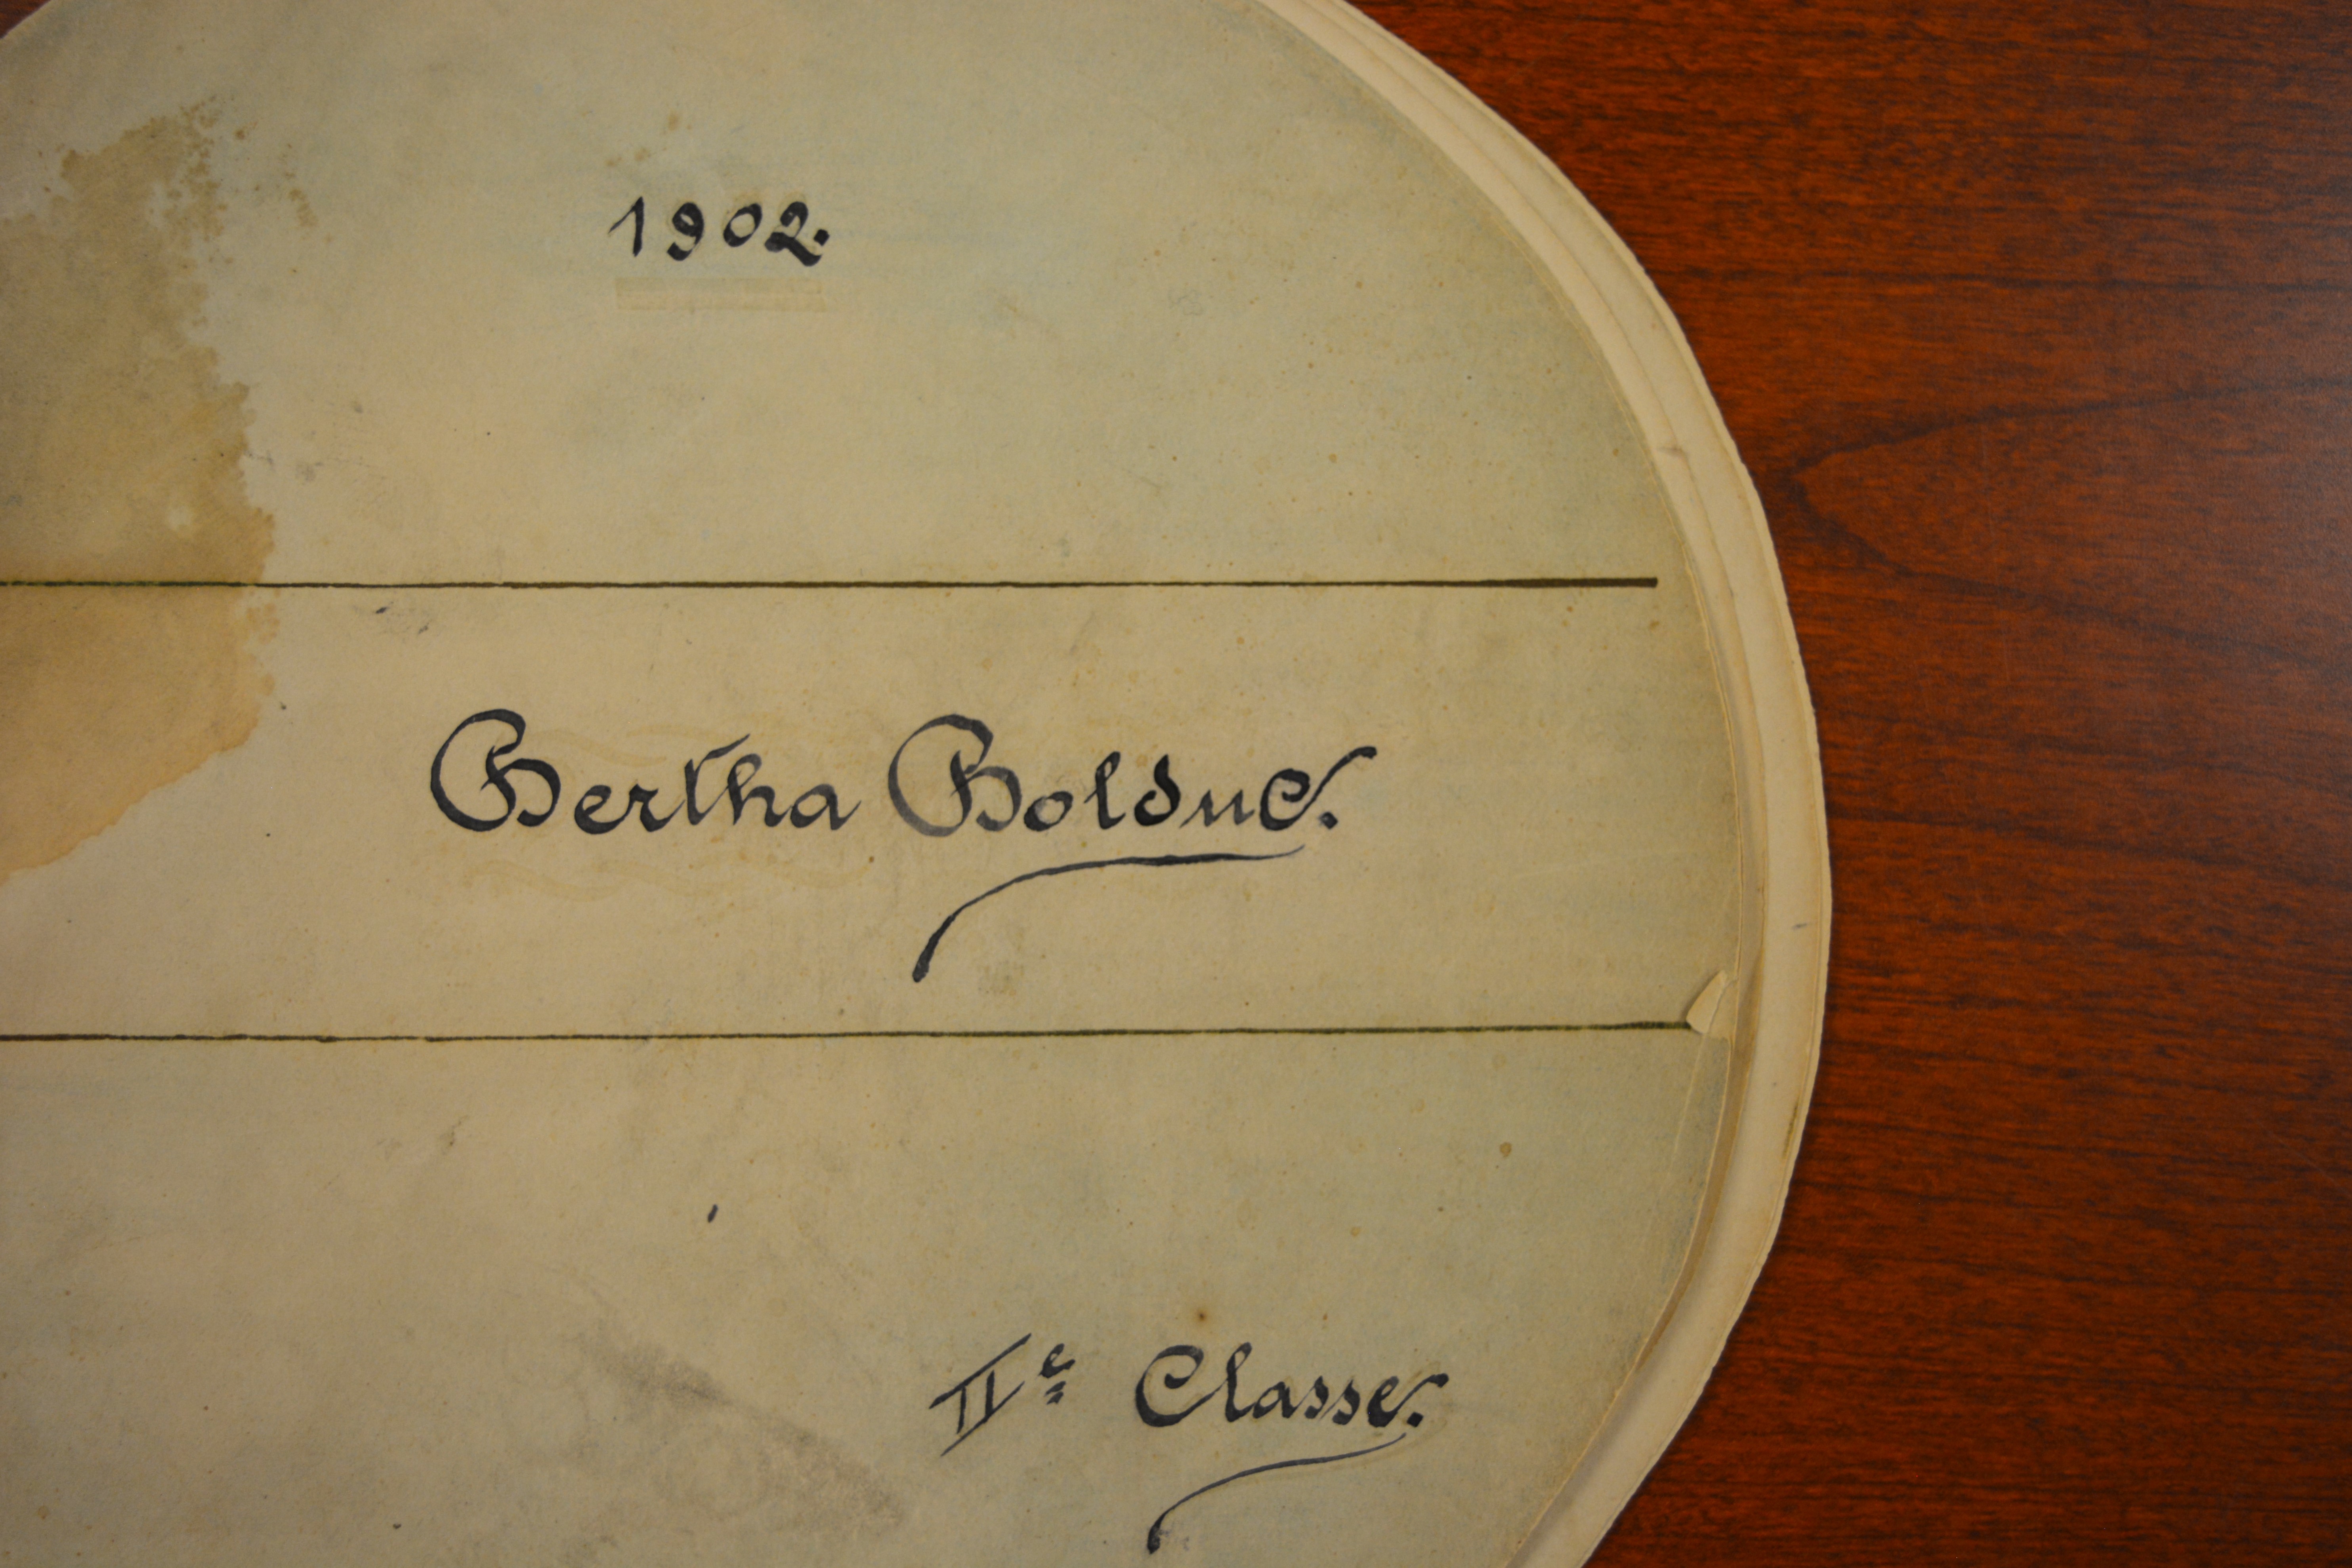 1902.
Bertha Bolduc.
IIe Classe.